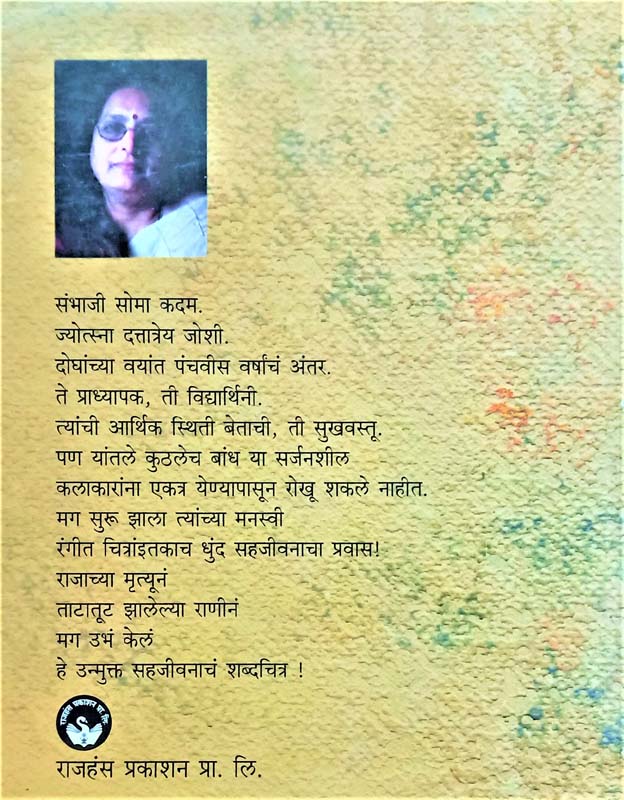 संभाजी सोमा कदम.
ज्योत्स्ना दत्तात्रेय जोशी.
दोघांच्या वयांत पंचवीस वर्षांचं अंतर.
ते प्राध्यापक, ती विद्यार्थिनी.
त्यांची आर्थिक स्थिती बेताची, ती सुखवस्तू.
पण यांतले कुठलेच बांध या सर्जनशील
कलाकारांना एकत्र येण्यापासून रोखू शकले नाहीत.
मग सुरू झाला त्यांच्या मनस्वी
रंगीत चित्रांइतकाच धुंद सहजीवनाचा प्रवास!
राजाच्या मृत्यूनं
ताटातूट झालेल्या राणीनं
मग उभं केलं
हे उन्मुक्त सहजीवनाचं शब्दचित्र !
राजहंस प्रकाशन प्रा. लि.
राजहंस प्रकाशन प्रा. लि.